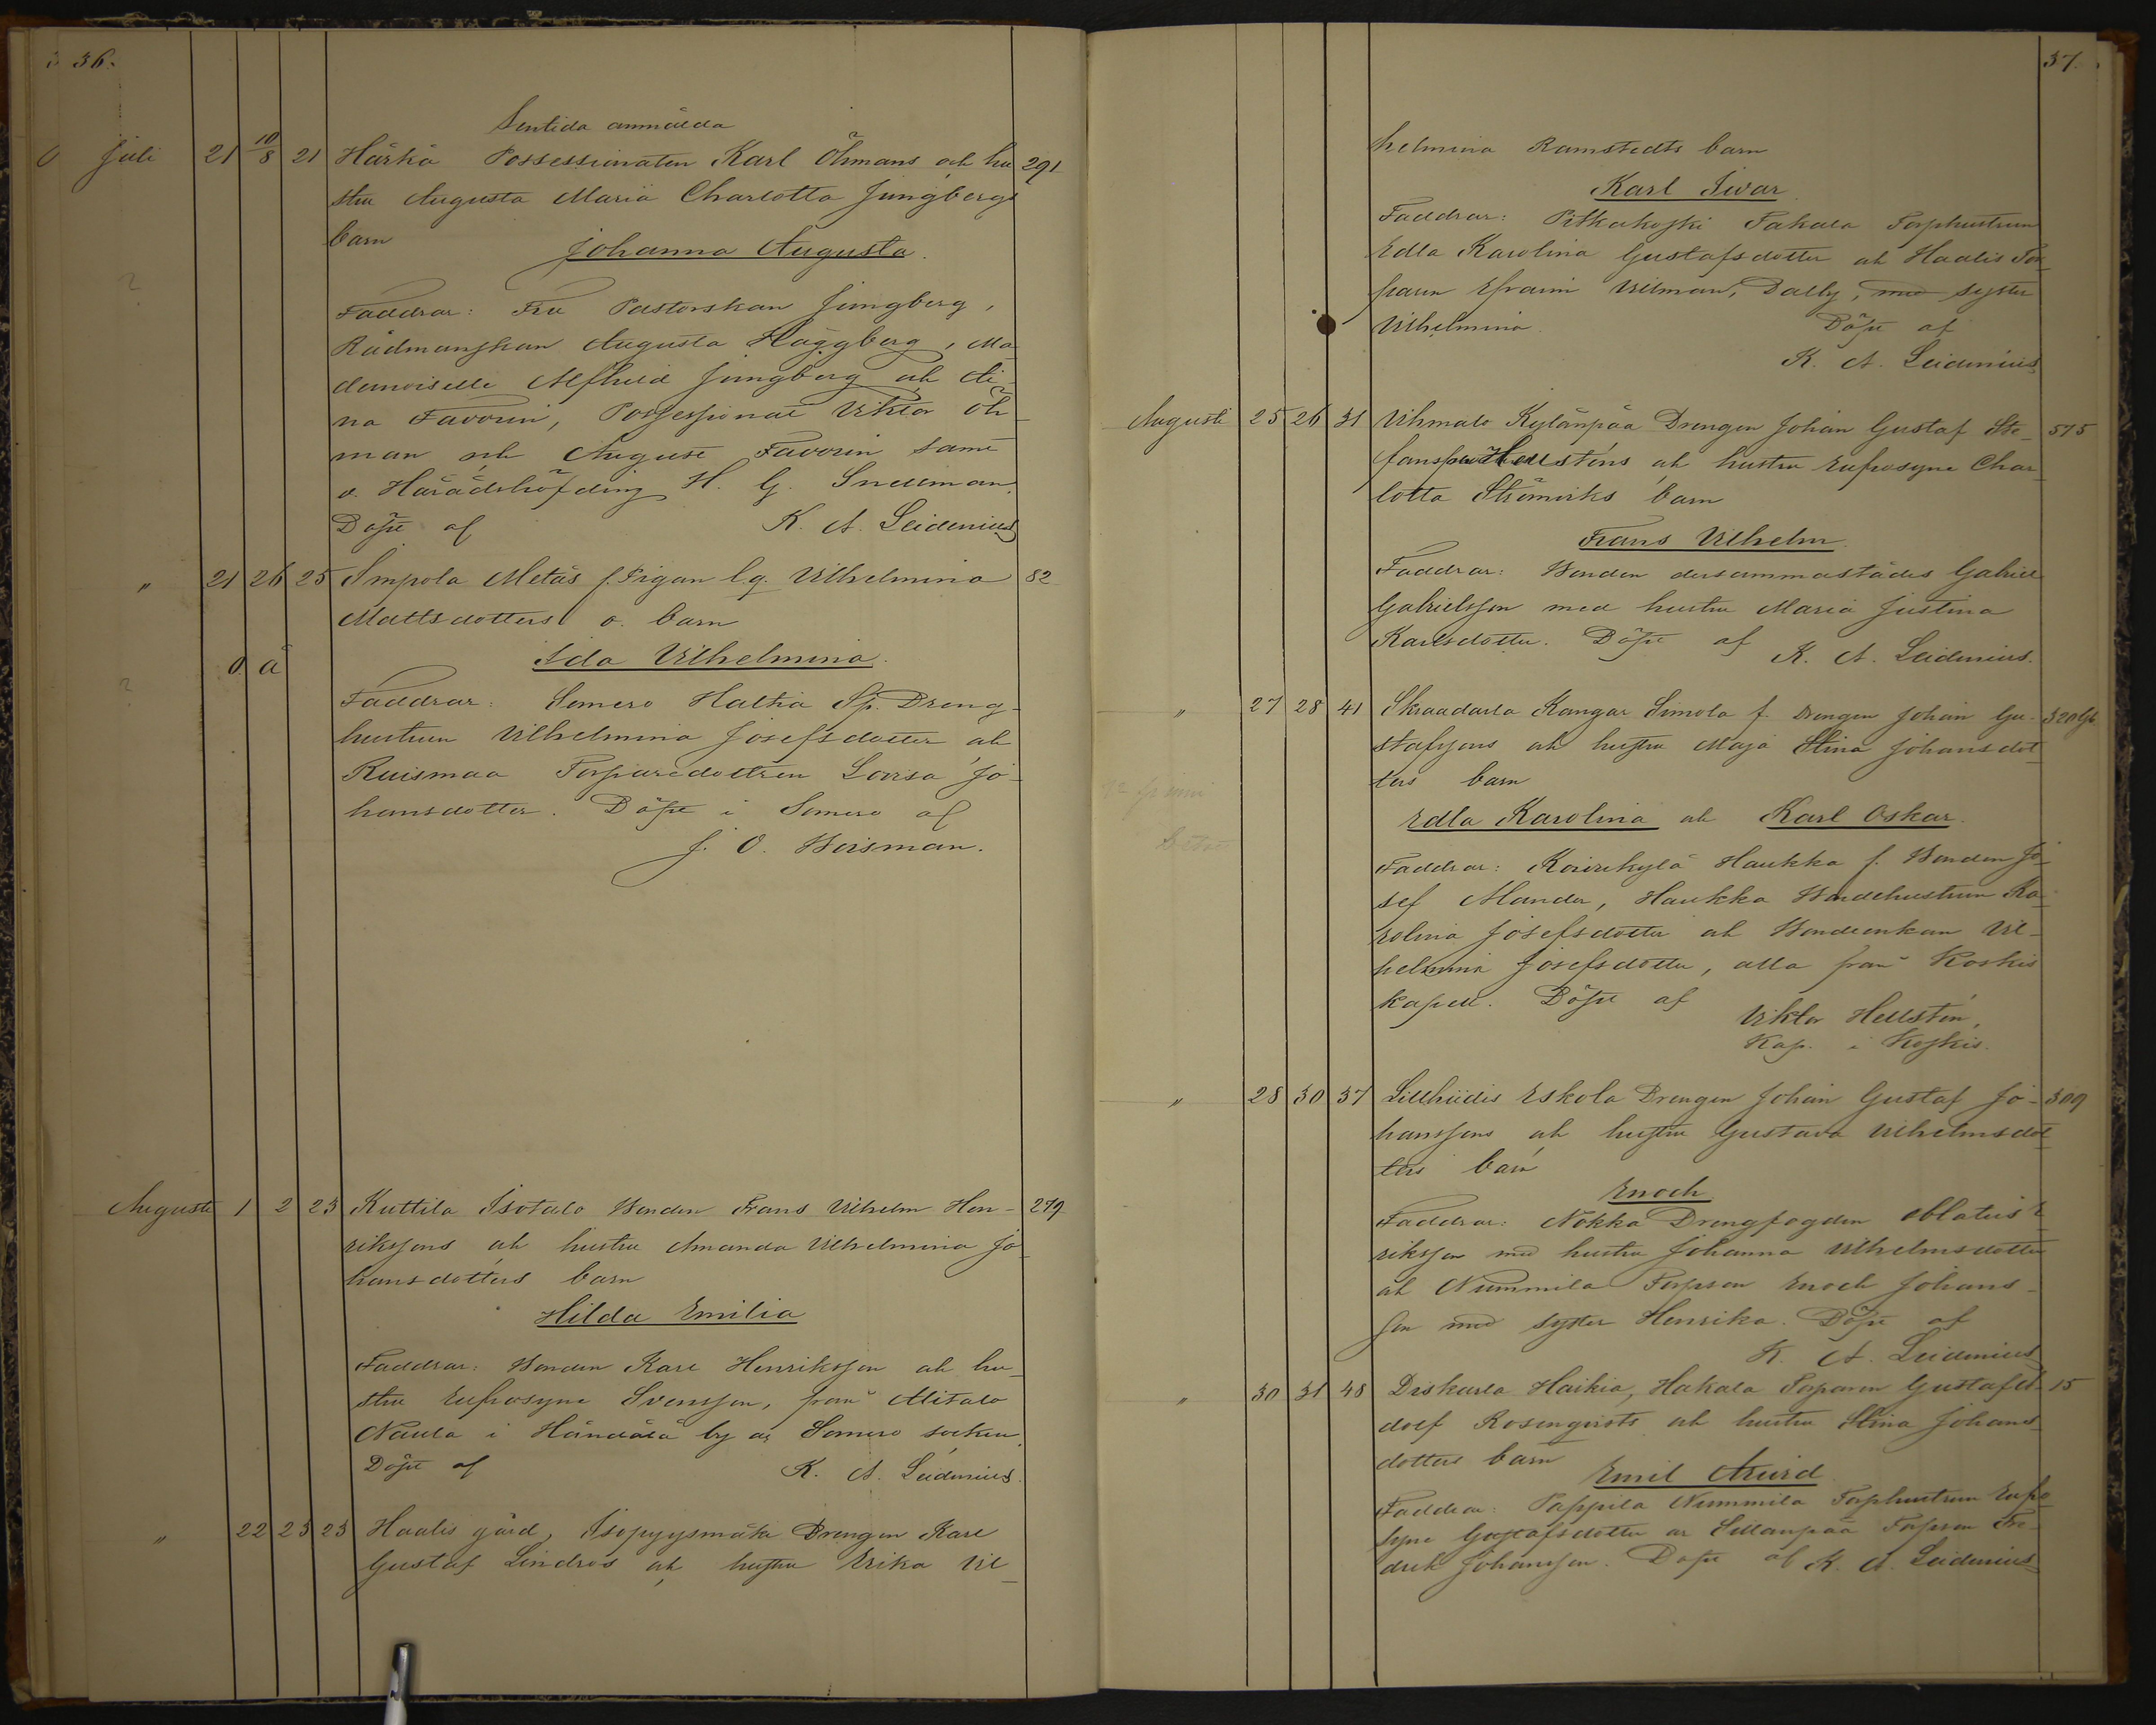 36.
Sentida anmälda
Juli 21 10/8 21 Härkä Possessionaten Karl Öhmans och hu 291
stru Augusta Maria Charlotta Jungbergs
barn
Johanna Augusta.
Faddrar: Fru Pastorskan Jungberg,
Rådmanskan Augusta Häggberg, Ma
demoiselle Alfhild Jungberg och Ai-
na Favorin, Possessionat Viktor Öh-
man och August Favorin samt
v. Häradshöfding H. G. Snellman.
Döpt af K. A. Leidenius
" 21 26 25 Simpola Metäs f. Pigan l.q. Vilhelmina 82
Mattsdotters o. barn
O. ä
Ida Vilhelmina.
Faddrar: Somero Haltia Sp. Dreng-
hustrun Vilhelmina Josefsdotter och
Ruismaa Torparedottren Lovisa Jo-
hansdotter. Döpt i Somero af
J. O. Weisman.
Augusti 1 2 23 Kuttila Isotalo Bonden Frans Vilhelm Hen- 279
rikssons och hustru Amanda Vilhelmina Jo
hansdotters barn
Hilda Emilia
Faddrar: Bonden Karl Henriksson och hu-
stru Eufrosyne Svensson, från Alitalo
Naula i Häntälä by af Somero socken.
Döpt af K. A. Leidenius.
" 22 23 23 Haalis gård, Isopyysmäki Drengen Karl
Gustaf Lindros och hustru Erika Vil-
37.
helmina Ramstedts barn
Karl Ivar
Faddrar: Pitkäkoski Takala Torphustrun
Edla Karolina Gustafsdotter och Haalis Tor-
paren Efraim Vilman, Dalby, med syster
Vilhelmina. Döpt af
K. A. Leidenius
Augusti 25 26 31 Vihmalo Kylänpää Drengen Johan Gustaf Ste- 575
fansson Hellsténs och hustru Eufrosyne Char-
lotta Strömviks barn
Frans Vilhelm.
Faddrar: Bonden dersammastädes Gabriel
Gabrielsson med hustru Maria Justina
Karlsdotter. Döpt af K. A. Leidenius.
" 27 28 41 Skraadarla Kangar Simola f. Drengen Johan Gu- 320
stafssons och hustru Maja Stina Johansdot
ters barn
Edla Karolina och Karl Oskar.
Faddrar: Koivukylä Haukka f. Bonden Jo-
sef Mander, Haukka Bondehustrun Ka-
rolina Josefsdotter och Bondeenkan Vil-
helmina Josefsdotter, alla från Koskis
kapell. Döpt af Viktor Hellstén,
Kap. i Koskis.
" 28 30 37 Lillhiidis Eskola Drengen Johan Gustaf Jo- 309
hanssons och hustru Gustava Vilhelmsdot
ters barn
Enoch
Faddrar: Nokka Drengfogden Oblatus E
riksson med hustru Johanna Vilhelmsdotter
och Nummila Torpson Enoch Johans-
son med syster Henrika. Döpt af
K. A. Leidenius
" 30 31 48 Diskarla Haikia, Hakala Torparen Gustaf A- 15
dolf Rosenqvists och hustru Stina Johans
dotters barn
Emil Arvid.
Faddrar: Pappila Nummila Torphustrun Eufro
syne Gustafsdotter och Sillanpää Torpson Fre-
drik Johansson. Döpt af K. A. Leidenius